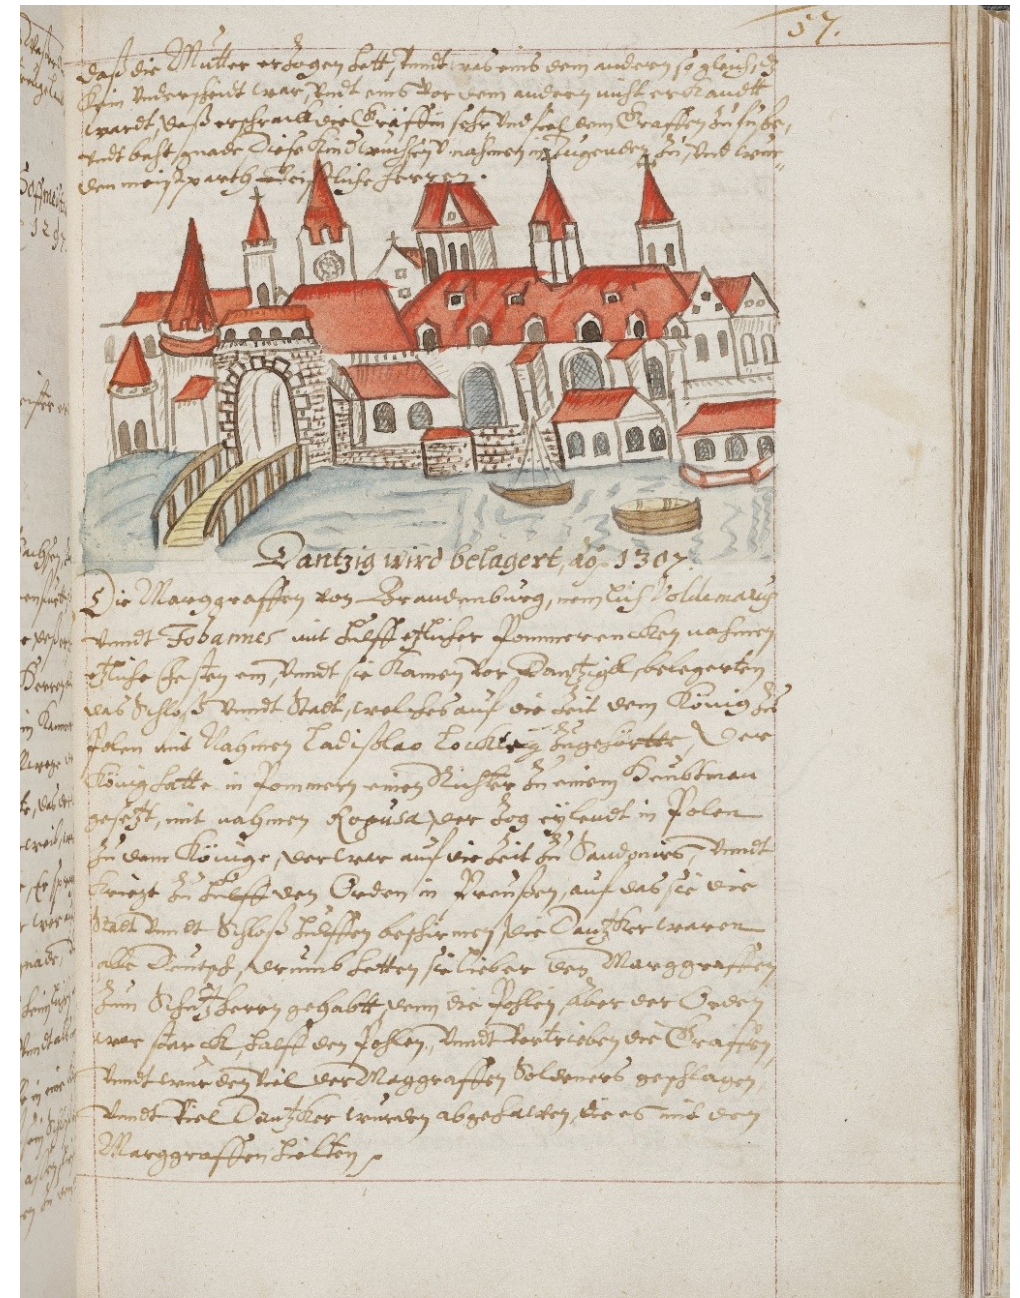 57.
daß die Mutter erzogen hett, vnndt was eins dem andern so gleich, dz
kein vnderscheidt war, vndt eins vor dem andern nicht erkandtt
wardt, daß erschrack die Gräffin sehr vnd fiel dem Graffen zu fuße,
vndt baht gnade, Diese Kind wuchsen v. nahmen in Tugenden zu, vnd wur-
den meistparth Geistliche Herren.
Dantzig wird belagert, ao. 1307.
Die Marggraffen von Brandenburg, nemlich Voldemarus
vnndt Johannes mit hülff etlicher Pommerencken nahmen
etzliche Festen ein, vnndt sie kamen vor Dantzigk, belegerten
das Schloß vnndt Stadt, welches auf die Zeit dem König zu
Polen mit Nahmen Ladißlao Lockteig zugehörtte, Der
König hatte in Pommern einen Richter zu einem Heubtman
gesetzt, mit nahmen Rogusa, der zog eylendt in Polen
zu dem Könige, der war auf die Zeit zu Sandomirs, vnndt
kriegt zu hülff den Orden in Preußen, auf das sie die
Stadt vnndt Schloß hülffen beschirmen, die Dantzker waren
alle Deutsch, drumb hetten sie lieber den Marggraffen
zum Schutzherrn gehabtt, denn die Pohlen, aber der Orden
war starck, halff den Pohlen, vnndt vertrieben die Graffen,
vnndt wurden viel der Maggraffen Soldeners geschlagen,
vnndt viel Dantzker wurden abgehalten, die es mit den
Marggraffen hielten.